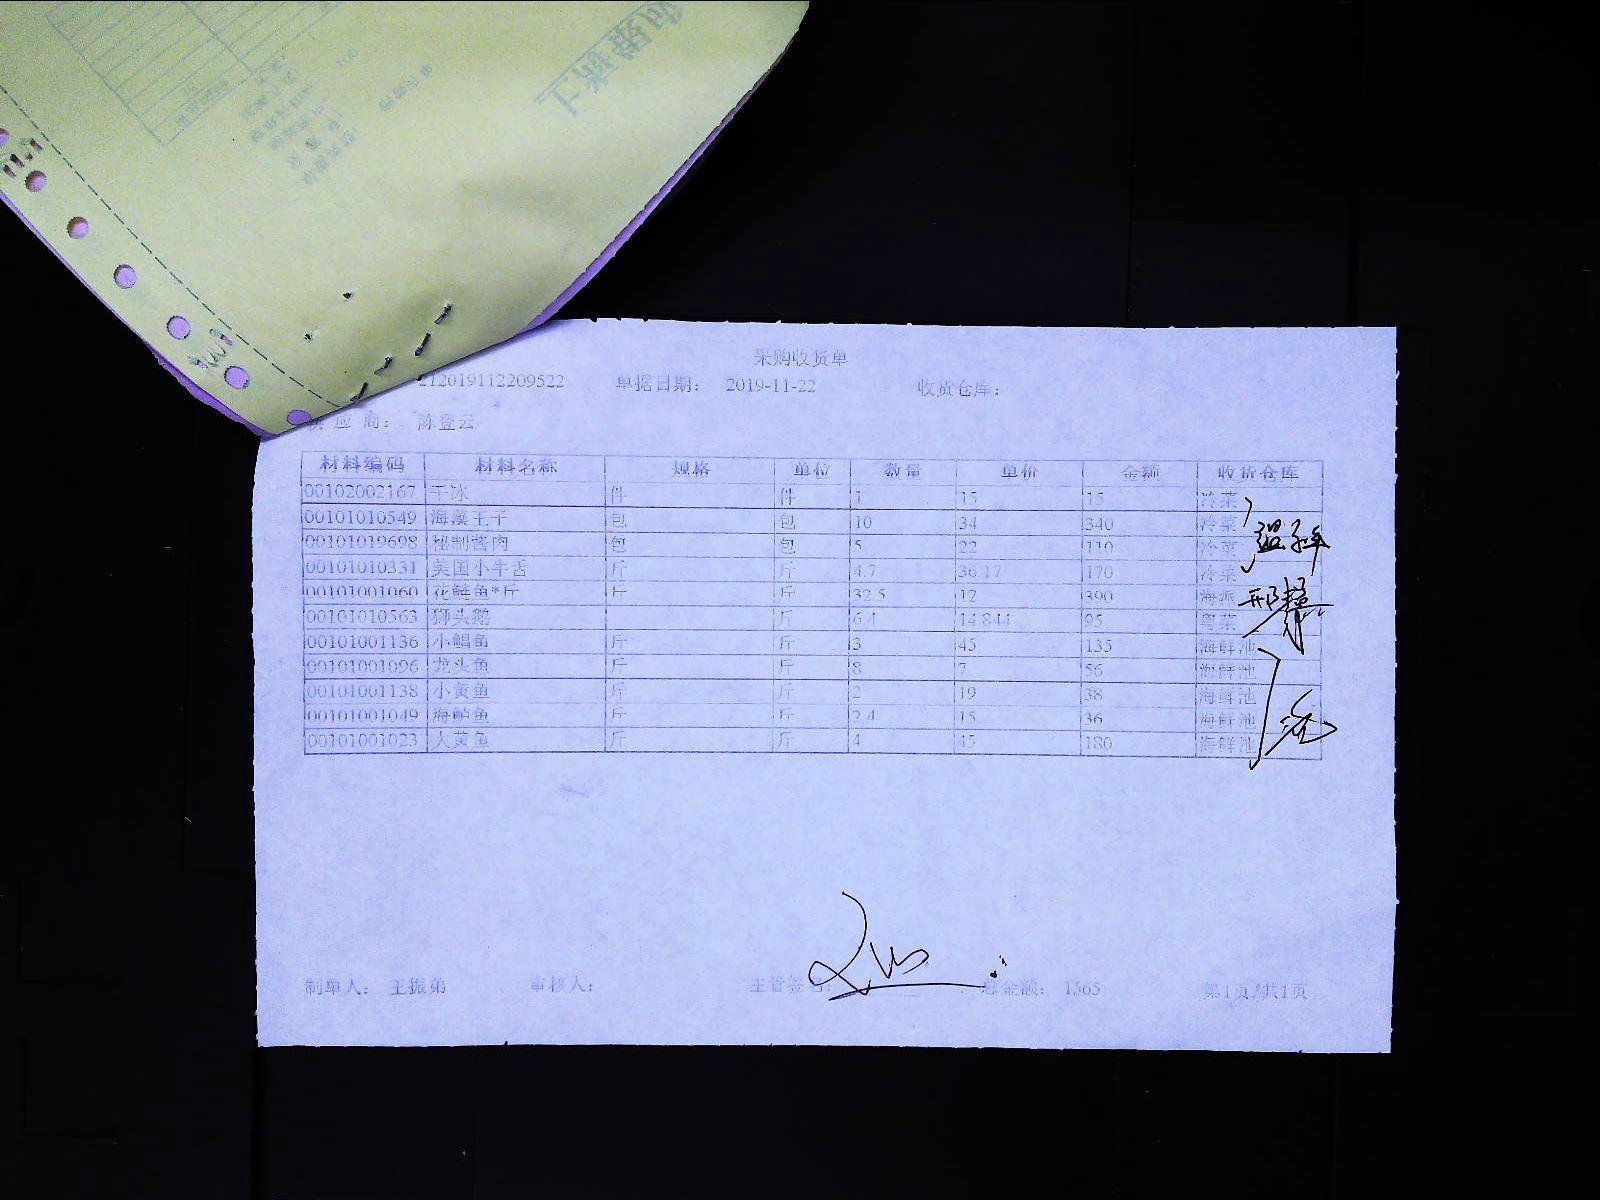 采购收货单
212019112209522 单据日期： 2019-11-22 收货仓库：
供 应 商： 陈登云
材料编码 材料名称 规格 单位 数量 单价 金额 收货仓库
00102002167 干冰 件 件 1 15 15 冷菜
00101010549 海藻王子 包 包 10 34 340 冷菜
00101019698 秘制酱肉 包 包 5 22 110 冷菜
00101010331 美国小牛舌 斤 斤 4.7 36.17 170 冷菜
00101001060 花鲢鱼*斤 斤 斤 32.5 12 390 海派
00101010563 狮头鹅 斤 6.4 14.844 95 粤菜
00101001136 小鲳鱼 斤 斤 3 45 135 海鲜池
00101001096 龙头鱼 斤 斤 8 7 56 海鲜池
00101001138 小黄鱼 斤 斤 2 19 38 海鲜池
00101001049 海鲈鱼 斤 斤 2.4 15 36 海鲜池
00101001023 大黄鱼 斤 斤 4 45 180 海鲜池
制单人： 王振弟 审核人： 主管签名： 总金额： 1565 第1页/共1页